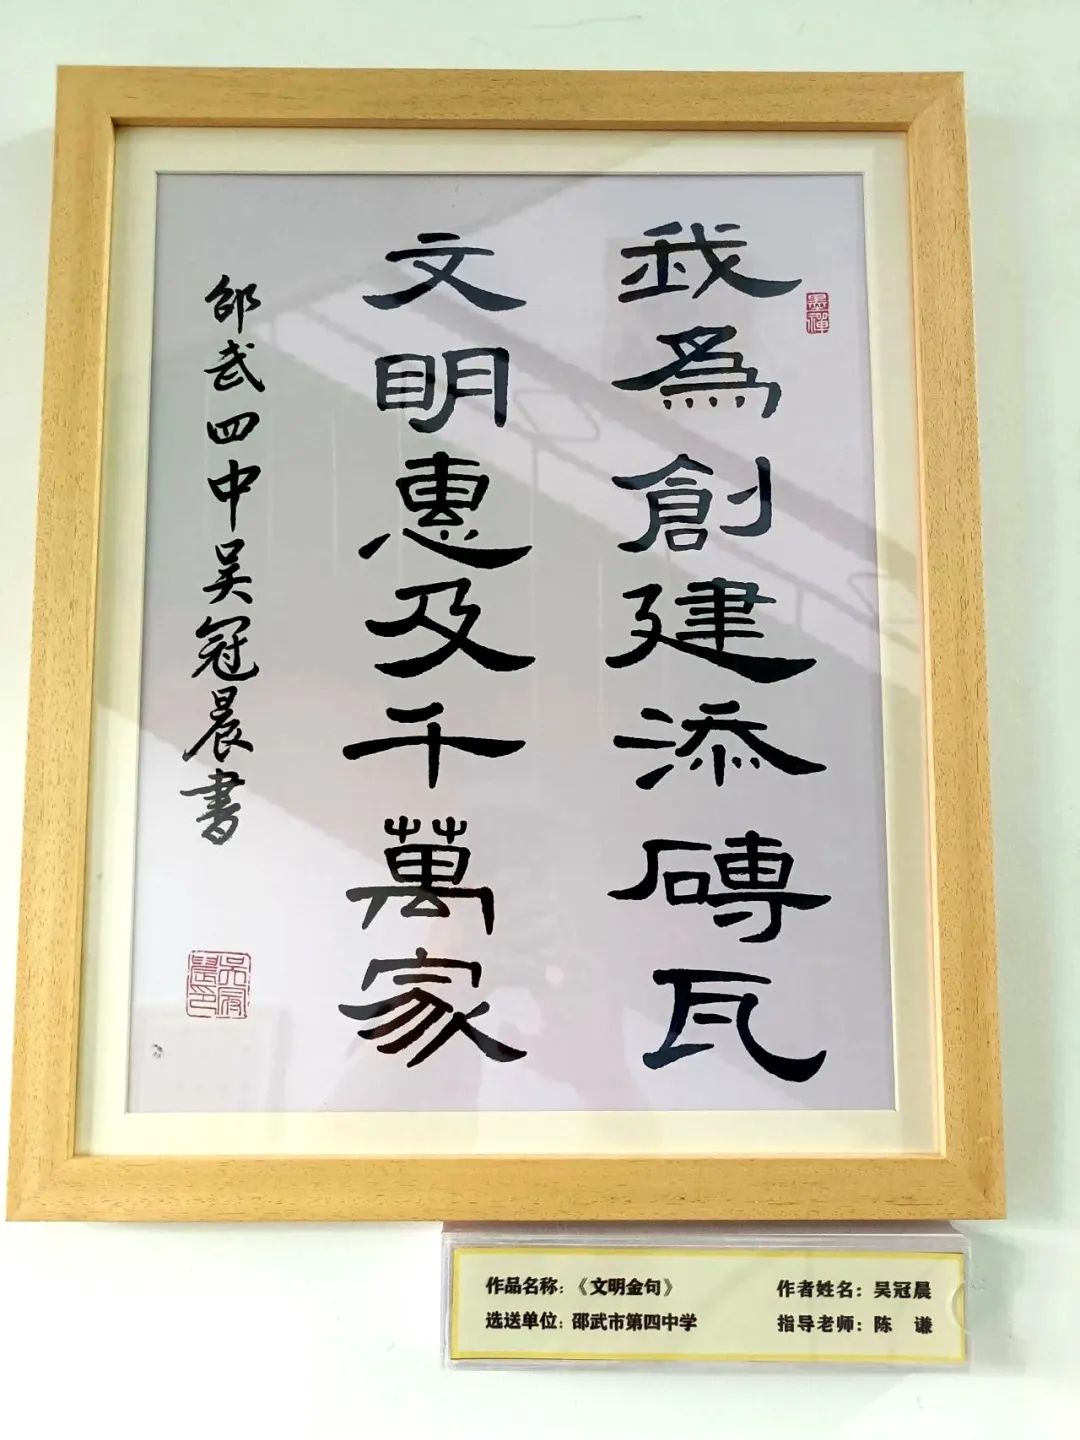 我為創建添磚瓦
文明惠及千萬家
邵武四中吴冠晨書
墨禪
吴冠晨印
作品名称：《文明金句》
作者姓名：吴冠晨
选送单位：邵武市第四中学
指导老师：陈 谦